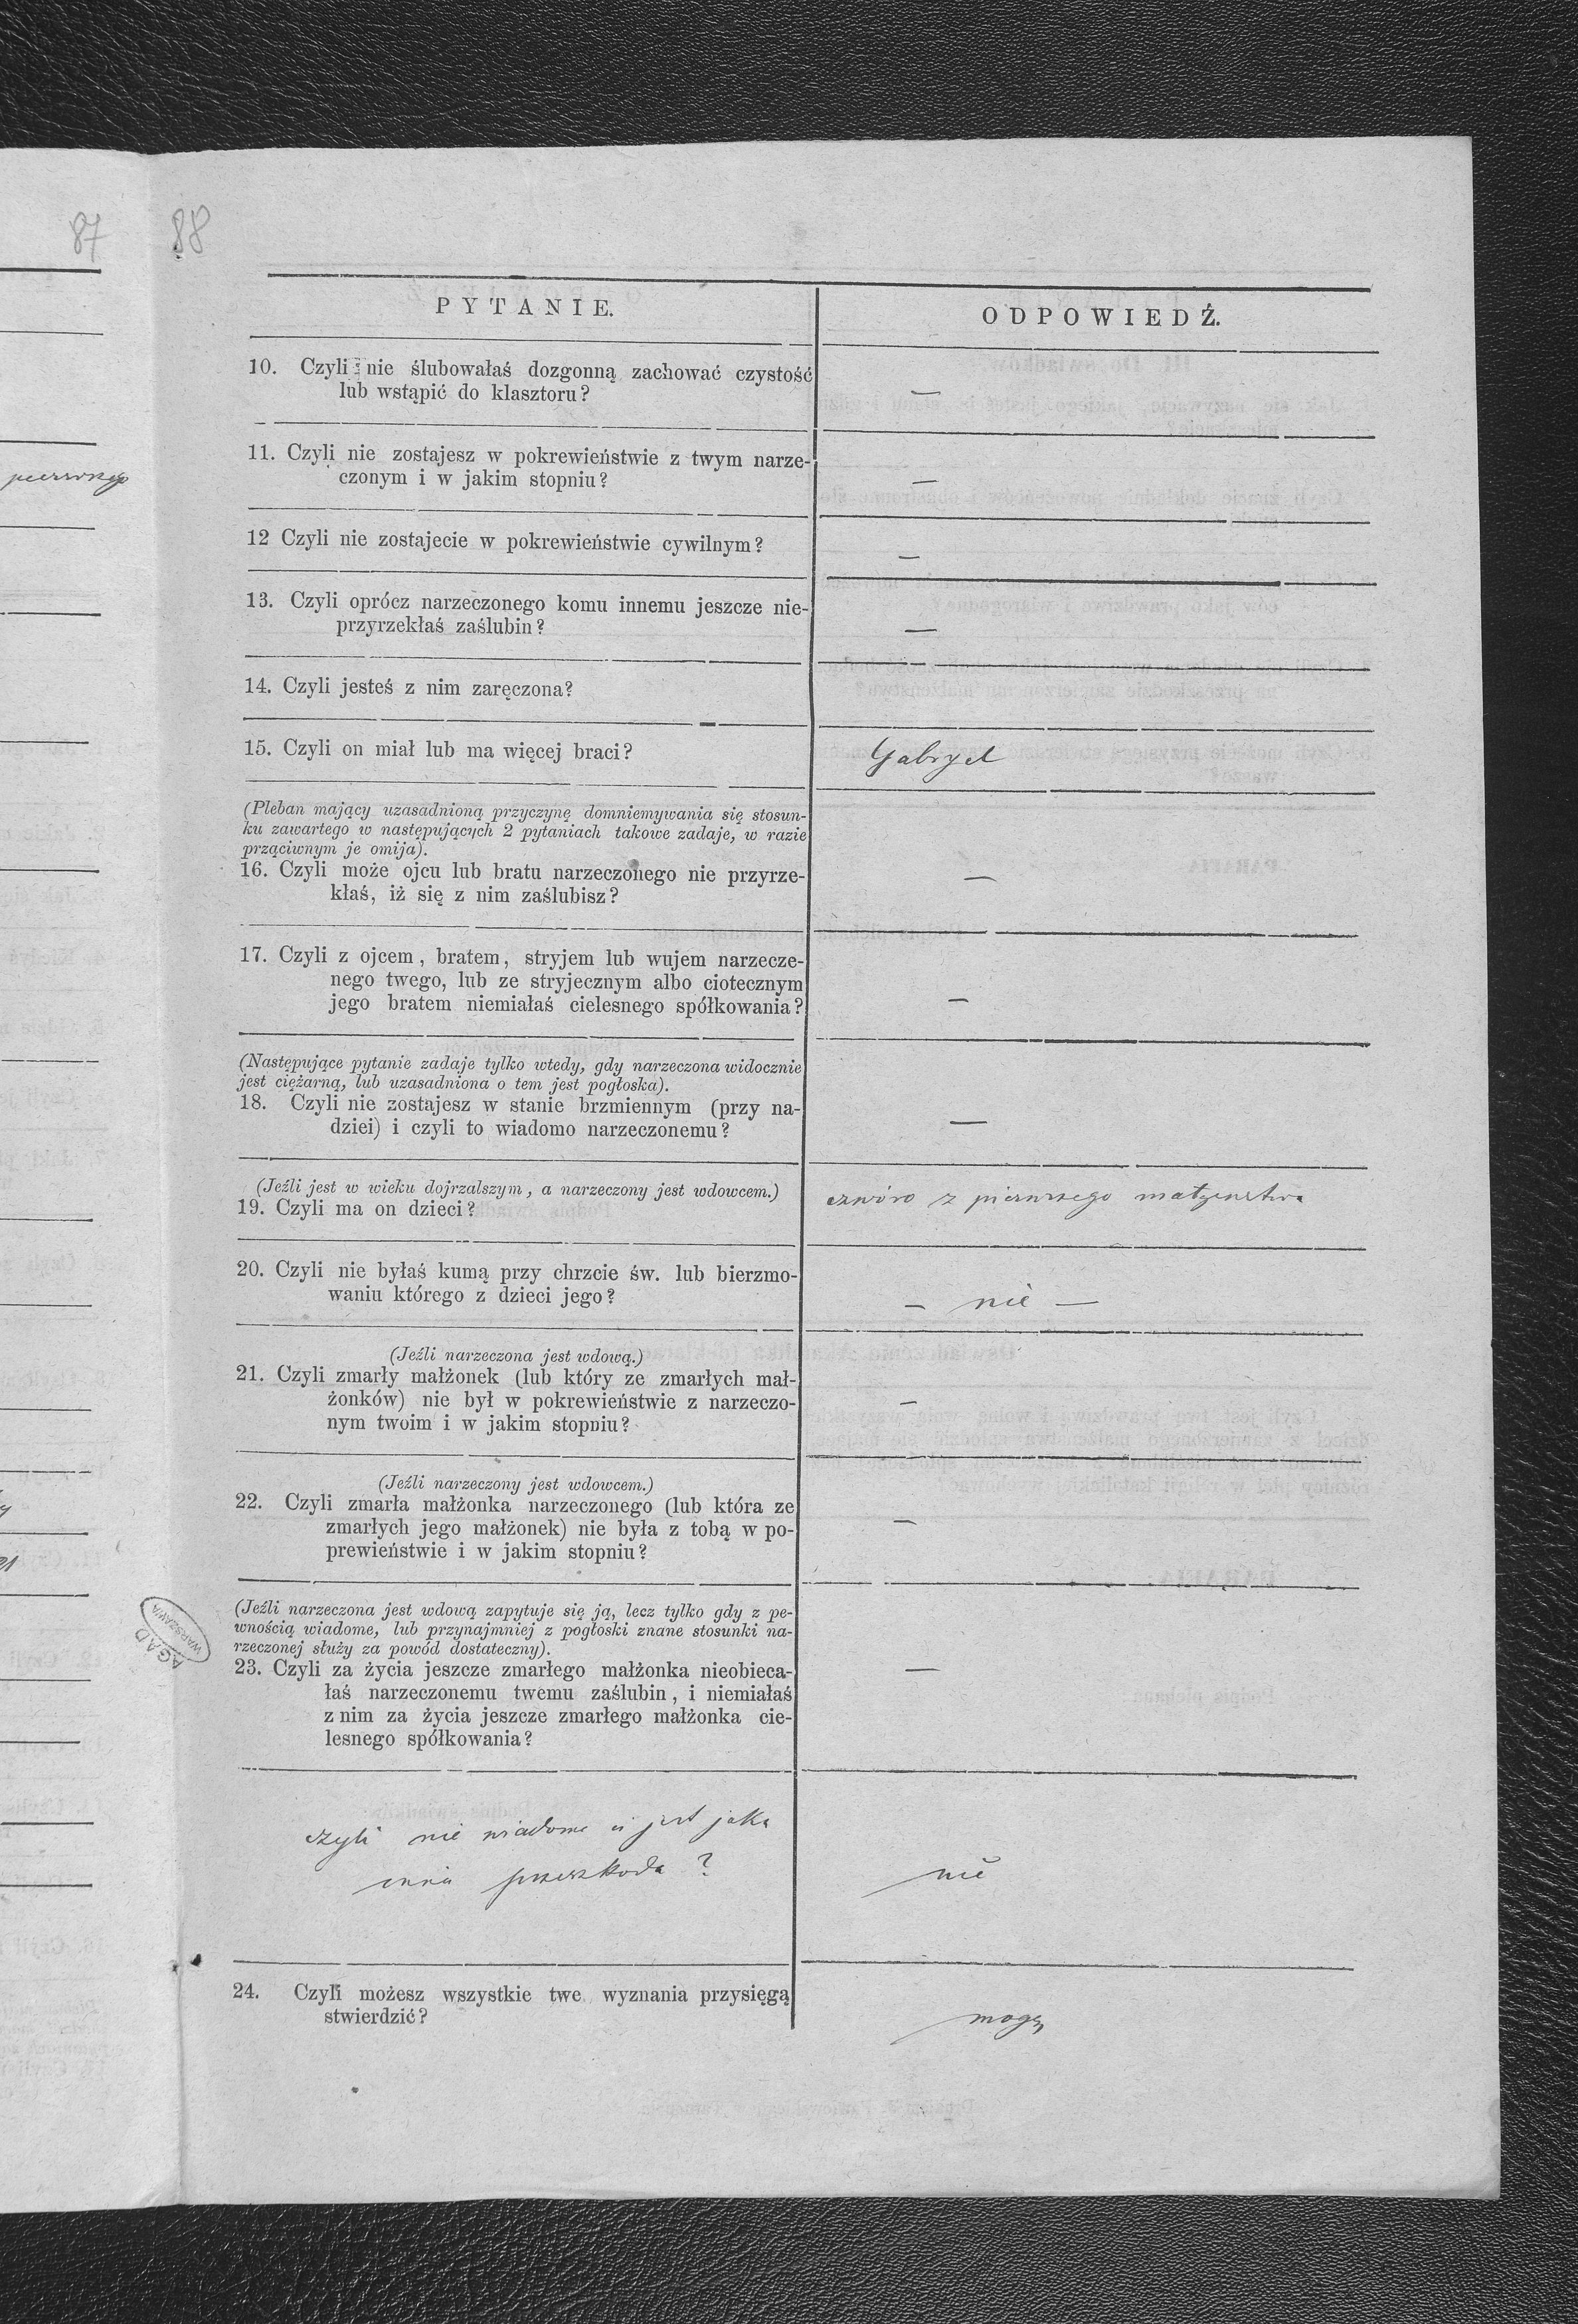 87 88
pierwszego
PYTANIE.
ODPOWIEDŹ.
10. Czyli nie ślubowałaś dozgonną zachować czystość
lub wstąpić do klasztoru?
—
11. Czyli nie zostajesz w pokrewieństwie z twym narze-
czonym i w jakim stopniu?
—
12 Czyli nie zostajecie w pokrewieństwie cywilnym?
—
13. Czyli oprócz narzeczonego komu innemu jeszcze nie-
przyrzekłaś zaślubin?
—
14. Czyli jesteś z nim zaręczona?
15. Czyli on miał lub ma więcej braci?
Gabryel
(Pleban mający uzasadnioną przyczynę domniemywania się stosun-
ku zawartego w następujących 2 pytaniach takowe zadaje, w razie
prząciwnym je omija).
16. Czyli może ojcu lub bratu narzeczonego nie przyrze-
kłaś, iż się z nim zaślubisz?
—
17. Czyli z ojcem, bratem, stryjem lub wujem narzecze-
nego twego, lub ze stryjecznym albo ciotecznym
jego bratem niemiałaś cielesnego spółkowania?
—
(Następujące pytanie zadaje tylko wtedy, gdy narzeczona widocznie
jest ciężarną, lub uzasadniona o tem jest pogłoska).
18. Czyli nie zostajesz w stanie brzmiennym (przy na-
dziei) i czyli to wiadomo narzeczonemu?
—
(Jeźli jest w wieku dojrzalszym, a narzeczony jest wdowcem.)
19. Czyli ma on dzieci?
czworo z pierwszego małżenstwa
20. Czyli nie byłaś kumą przy chrzcie św. lub bierzmo-
waniu którego z dzieci jego?
— nie —
(Jeźli narzeczona jest wdową.)
21. Czyli zmarły małżonek (lub który ze zmarłych mał-
żonków) nie był w pokrewieństwie z narzeczo-
nym twoim i w jakim stopniu?
—
(Jeźli narzeczony jest wdowcem.)
22. Czyli zmarła małżonka narzeczonego (lub która ze
zmarłych jego małżonek) nie była z tobą w po-
prewieństwie i w jakim stopniu?
—
(Jeźli narzeczona jest wdową zapytuje się ją, lecz tylko gdy z pe-
wnością wiadome, lub przynajmniej z pogłoski znane stosunki na-
rzeczonej służy za powód dostateczny).
23. Czyli za życia jeszcze zmarłego małżonka nieobieca-
łaś narzeczonemu twemu zaślubin, i niemiałaś
z nim za życia jeszcze zmarłego małżonka cie-
lesnego spółkowania?
—
AGAD
WARSZAWA
czyli nie wiadome ci jest jaka
inna przeszkoda?
nie
24. Czyli możesz wszystkie twe wyznania przysięgą
stwierdzić?
mogę